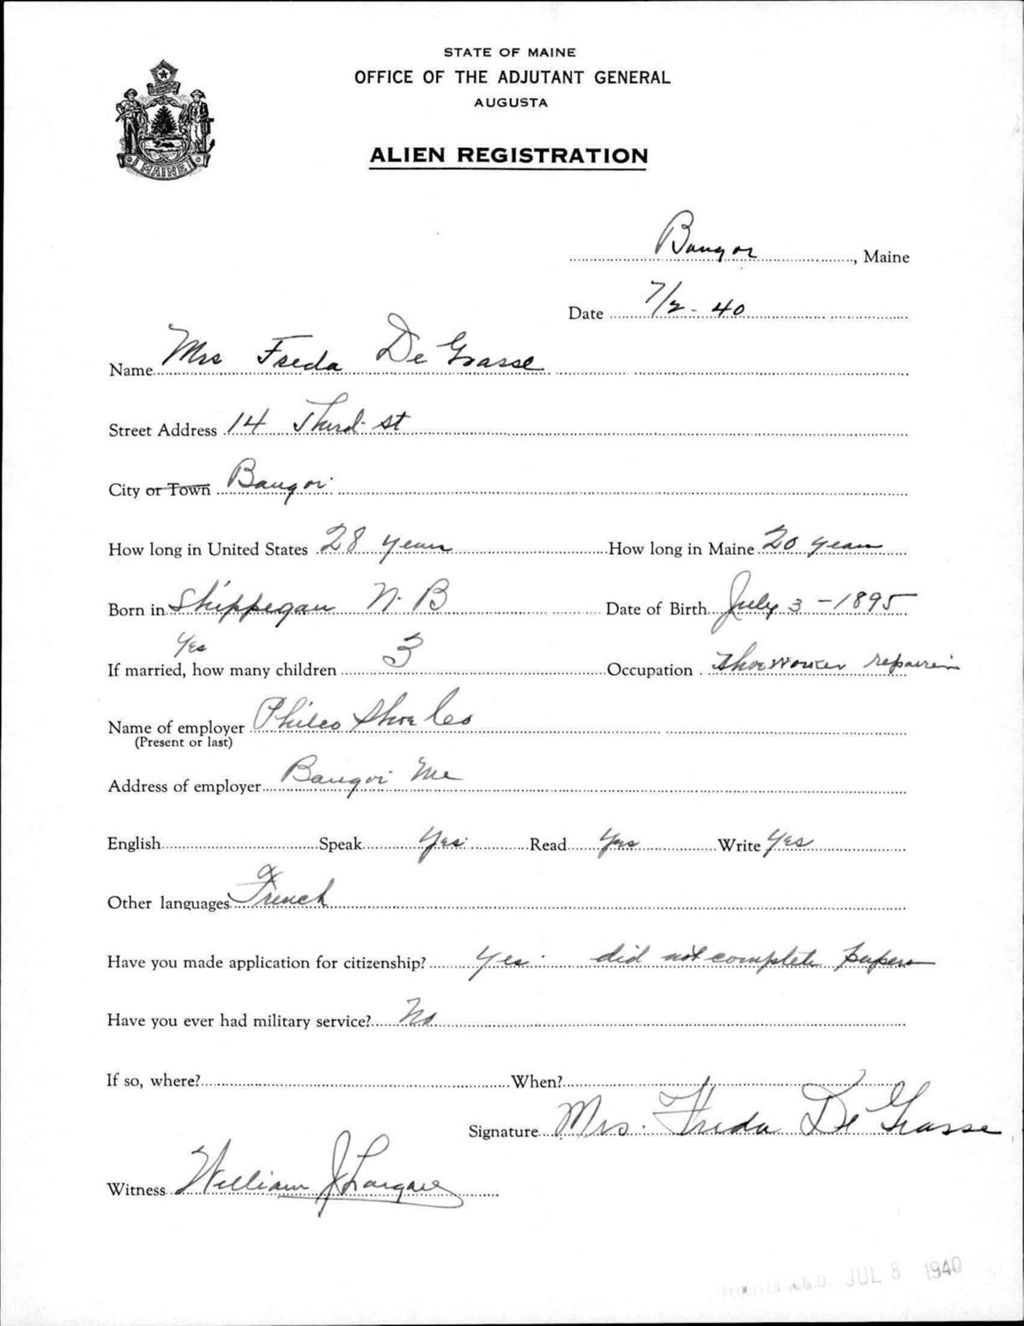 STATE OF MAINE
OFFICE OF THE ADJUTANT GENERAL
AUGUSTA
ALIEN REGISTRATION
MAINE
Bangor, Maine
Date 7/2-40
Name Mrs Freda De Grasse
Street Address 14 Third St
City or Town Bangor
How long in United States 28 years How long in Maine 20 years
Born in Shippegan N.B Date of Birth July 3-1895
Yes
If married, how many children 3 Occupation Shoeworker
Name of employer Philco Shoe Co
(Present or last)
Address of employer Bangor Me
English Speak Yes Read Yes Write Yes
Other languages French
Have you made application for citizenship? Yes. did not complete papers
Have you ever had military service? No
If so, where? When?
Signature Mrs. Freda De Grasse
Witness William J
A.G.O. JUL 8 1940